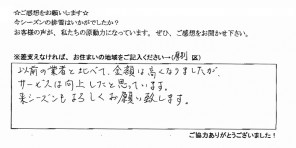 ☆ご感想をお願いします☆
今シーズンの排雪はいかがでしたか?
お客様の声が、私たちの原動力になっています。ぜひ、ご感想をお聞かせ下さい。
※差支えなければ、お住まいの地域をご記入ください→(厚別 区)
以前の業者と比べて、金額は高くなりましたが、
サービスは向上したと思っています。
来シーズンもよろしくお願い致します。
ご協力ありがとうございました!